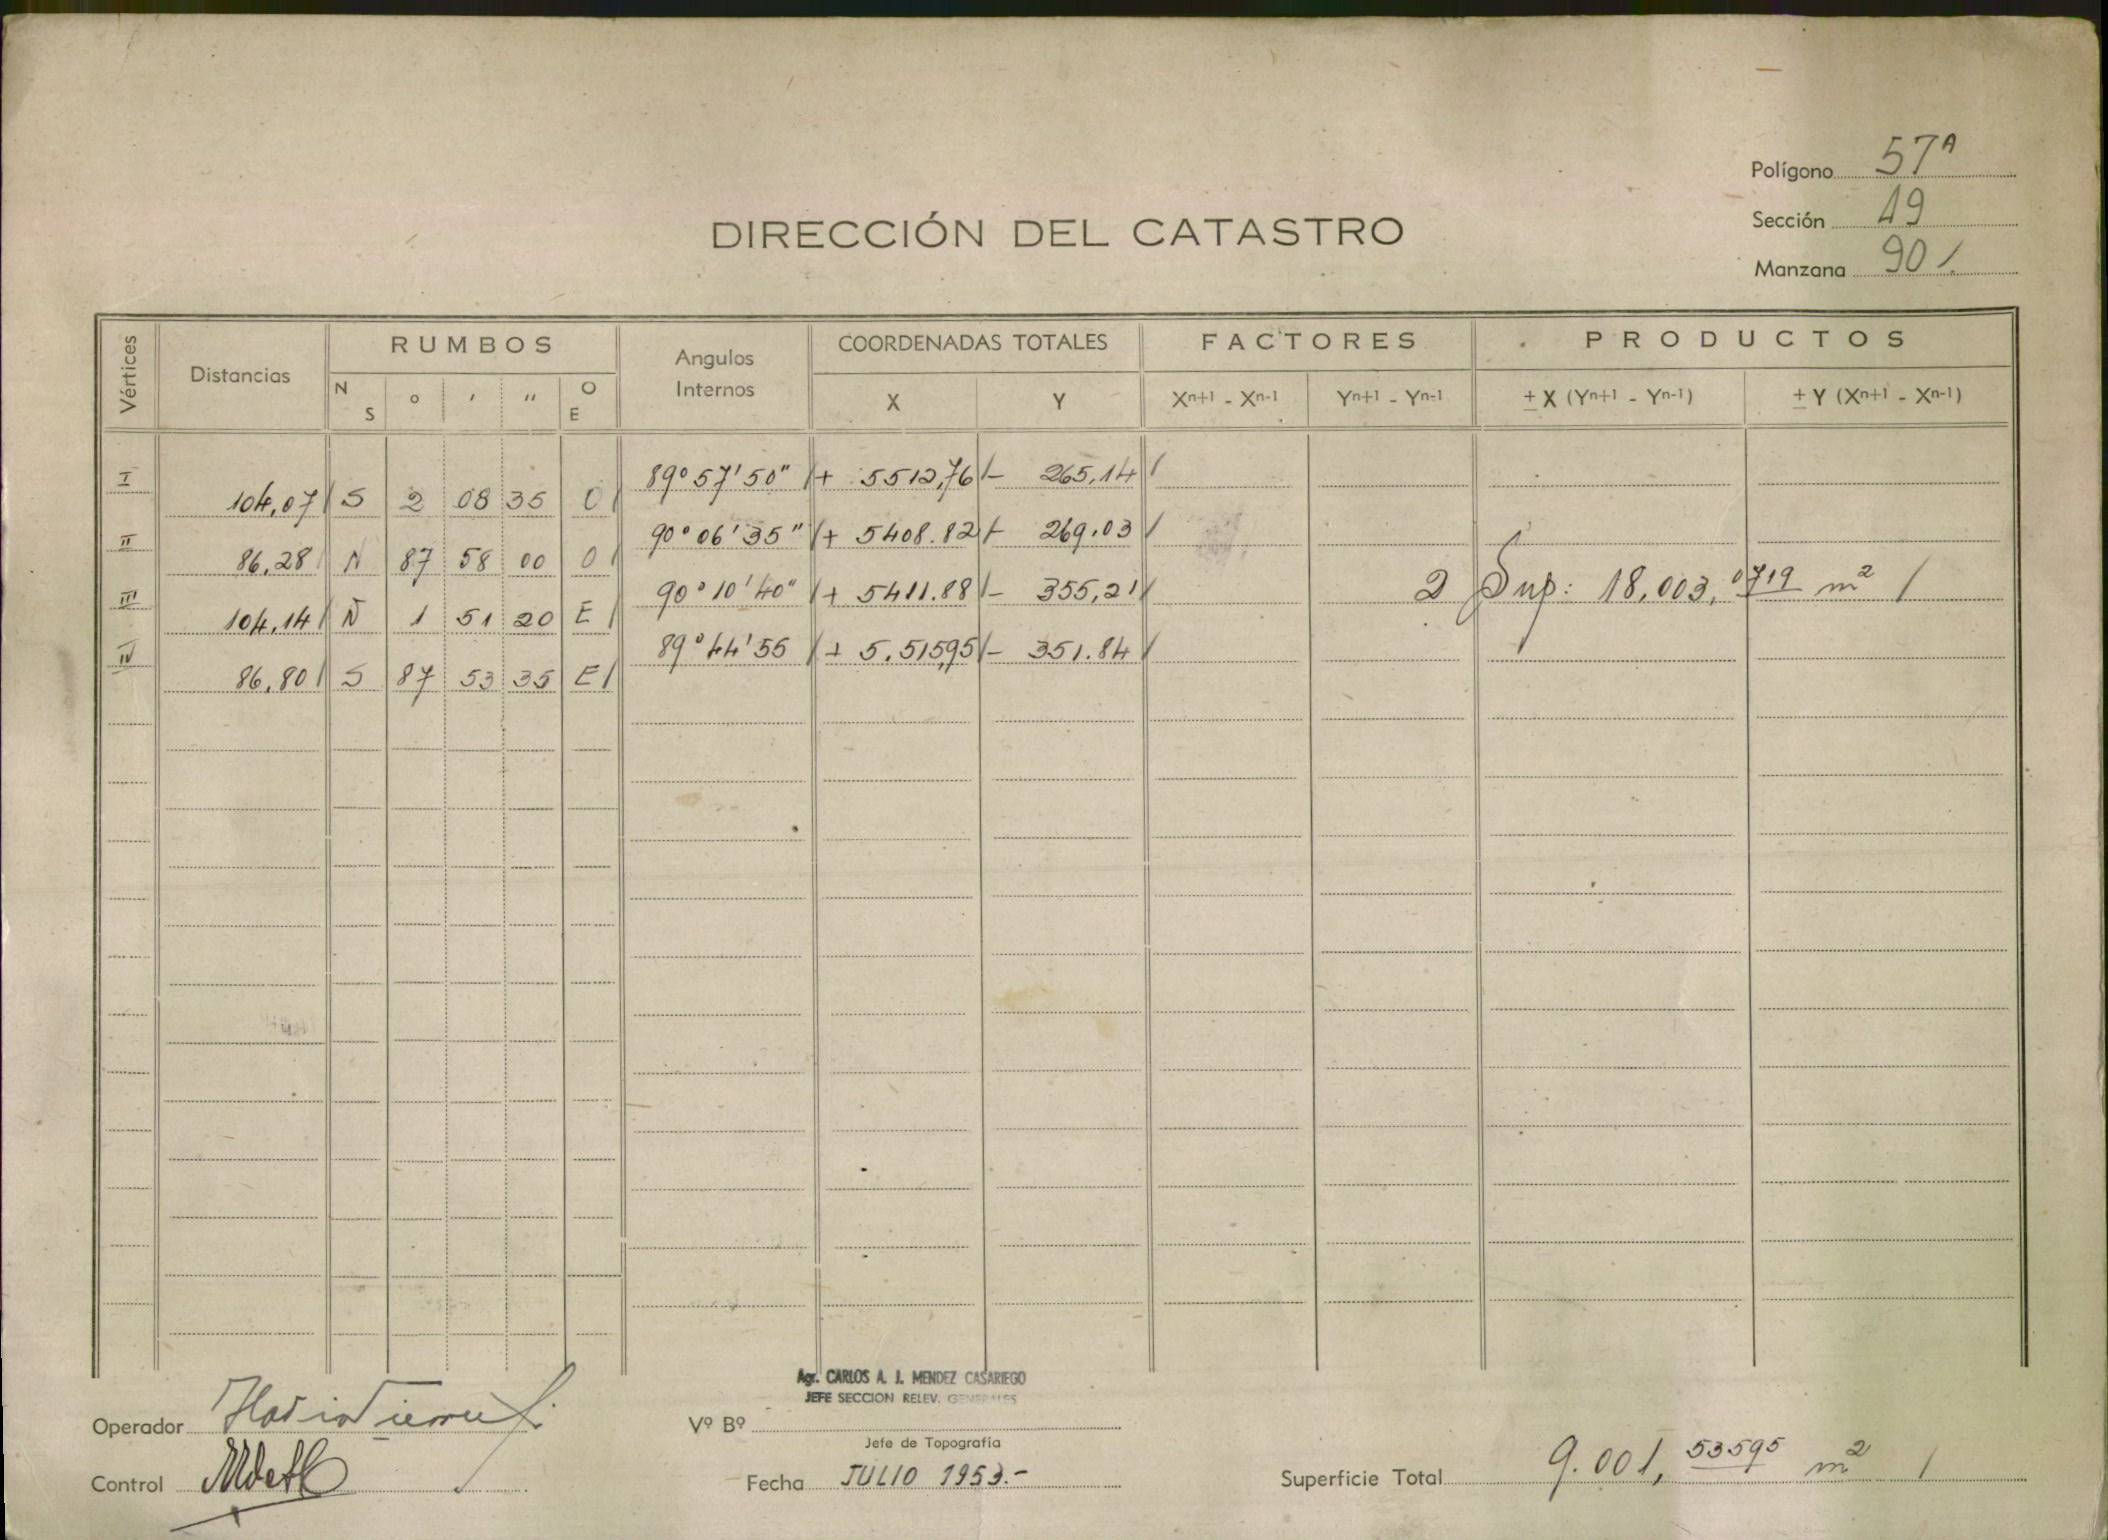 Polígono 57A
Sección 19
Manzana 90
DIRECCIÓN DEL CATASTRO
Vértices Distancias RUMBOS Angulos Internos COORDENADAS TOTALES FACTORES PRODUCTOS
N S ° ' " O E X Y Xn+1 - Xn-1 Yn+1 - Yn-1 ± X (Yn+1 - Yn-1) ± Y (Xn+1 - Xn-1)
I 89° 57' 50" + 5512,76 - 265,14
104,07 S 2 08 35 O
II 90° 06' 35" + 5408.82 - 269.03
86,28 N 87 58 00 O
III 90° 10' 40" + 5411.88 - 355,21 2 Sup: 18.003,0719 m²
104,14 N 1 51 20 E
IV 89° 44' 55 + 5.515,95 - 351.84
86,80 S 87 53 35 E
Agr. CARLOS A. J. MENDEZ CASARIEGO
JEFE SECCION RELEV. GENERALES
Operador
Vº Bº
Jefe de Topografía
Control
Fecha JULIO 1953.-
Superficie Total 9.001,53595 m²